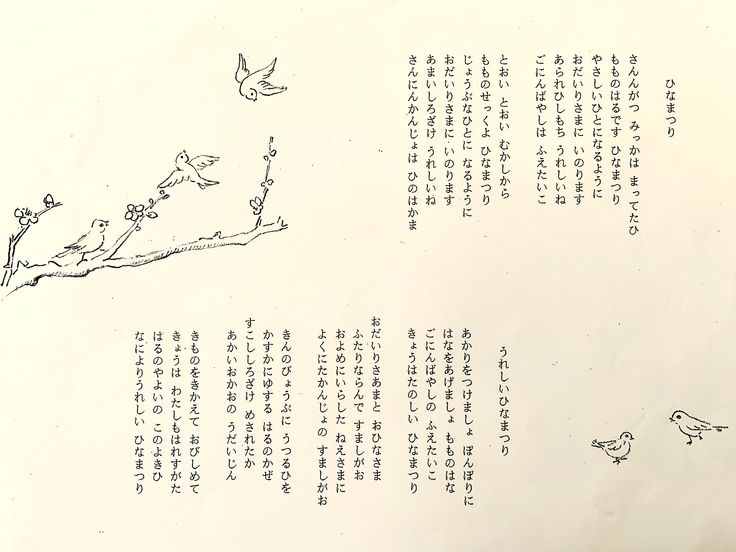 ひなまつり
さんんがつ みっかは まってたひ
もものはるです ひなまつり
やさしいひとになるように
おだいりさまに いのります
あられひしもち うれしいね
ごにんばやしは ふえたいこ
とおい とおい むかしから
もものせっくよ ひなまつり
じょうぶなひとに なるように
おだいりさまに いのります
あまいしろざけ うれしいね
さんにんかんじょは ひのはかま
うれしいひなまつり
あかりをつけましょ ぼんぼりに
はなをあげましょ もものはな
ごにんばやしの ふえたいこ
きょうはたのしい ひなまつり
おだいりさあまと おひなさま
ふたりならんで すましがお
およめにいらした ねえさまに
よくにたかんじょの すましがお
きんのびょうぶに うつるひを
かすかにゆする はるのかぜ
すこししろざけ めされたか
あかいおかおの うだいじん
きものをきかえて おびしめて
きょうは わたしもはれすがた
はるのやよいの このよきひ
なによりうれしい ひなまつり